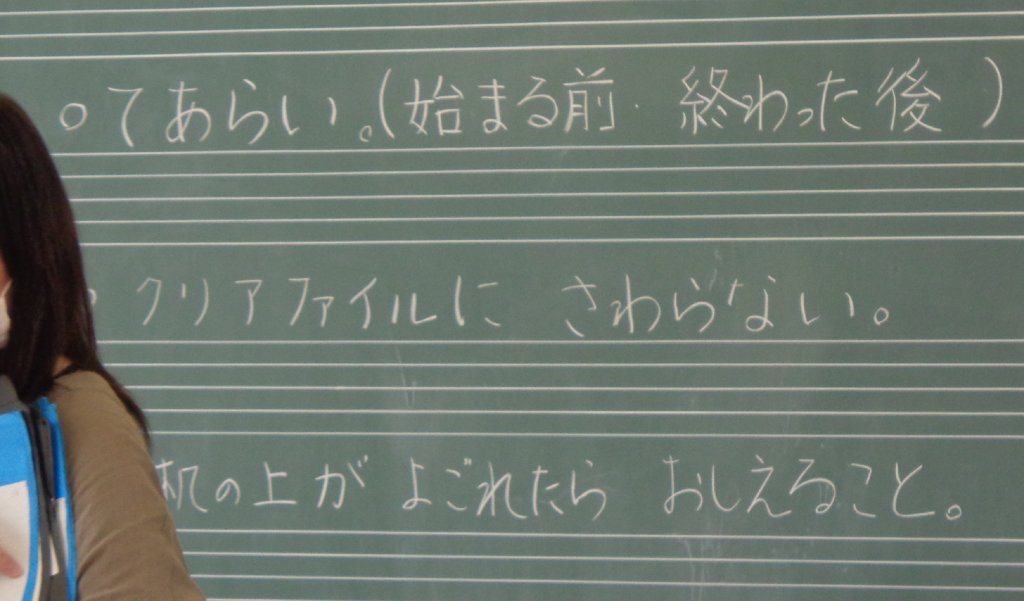 ○てあらい。(始まる前・終わった後)
クリアファイルに さわらない。
机の上が よごれたら おしえること。